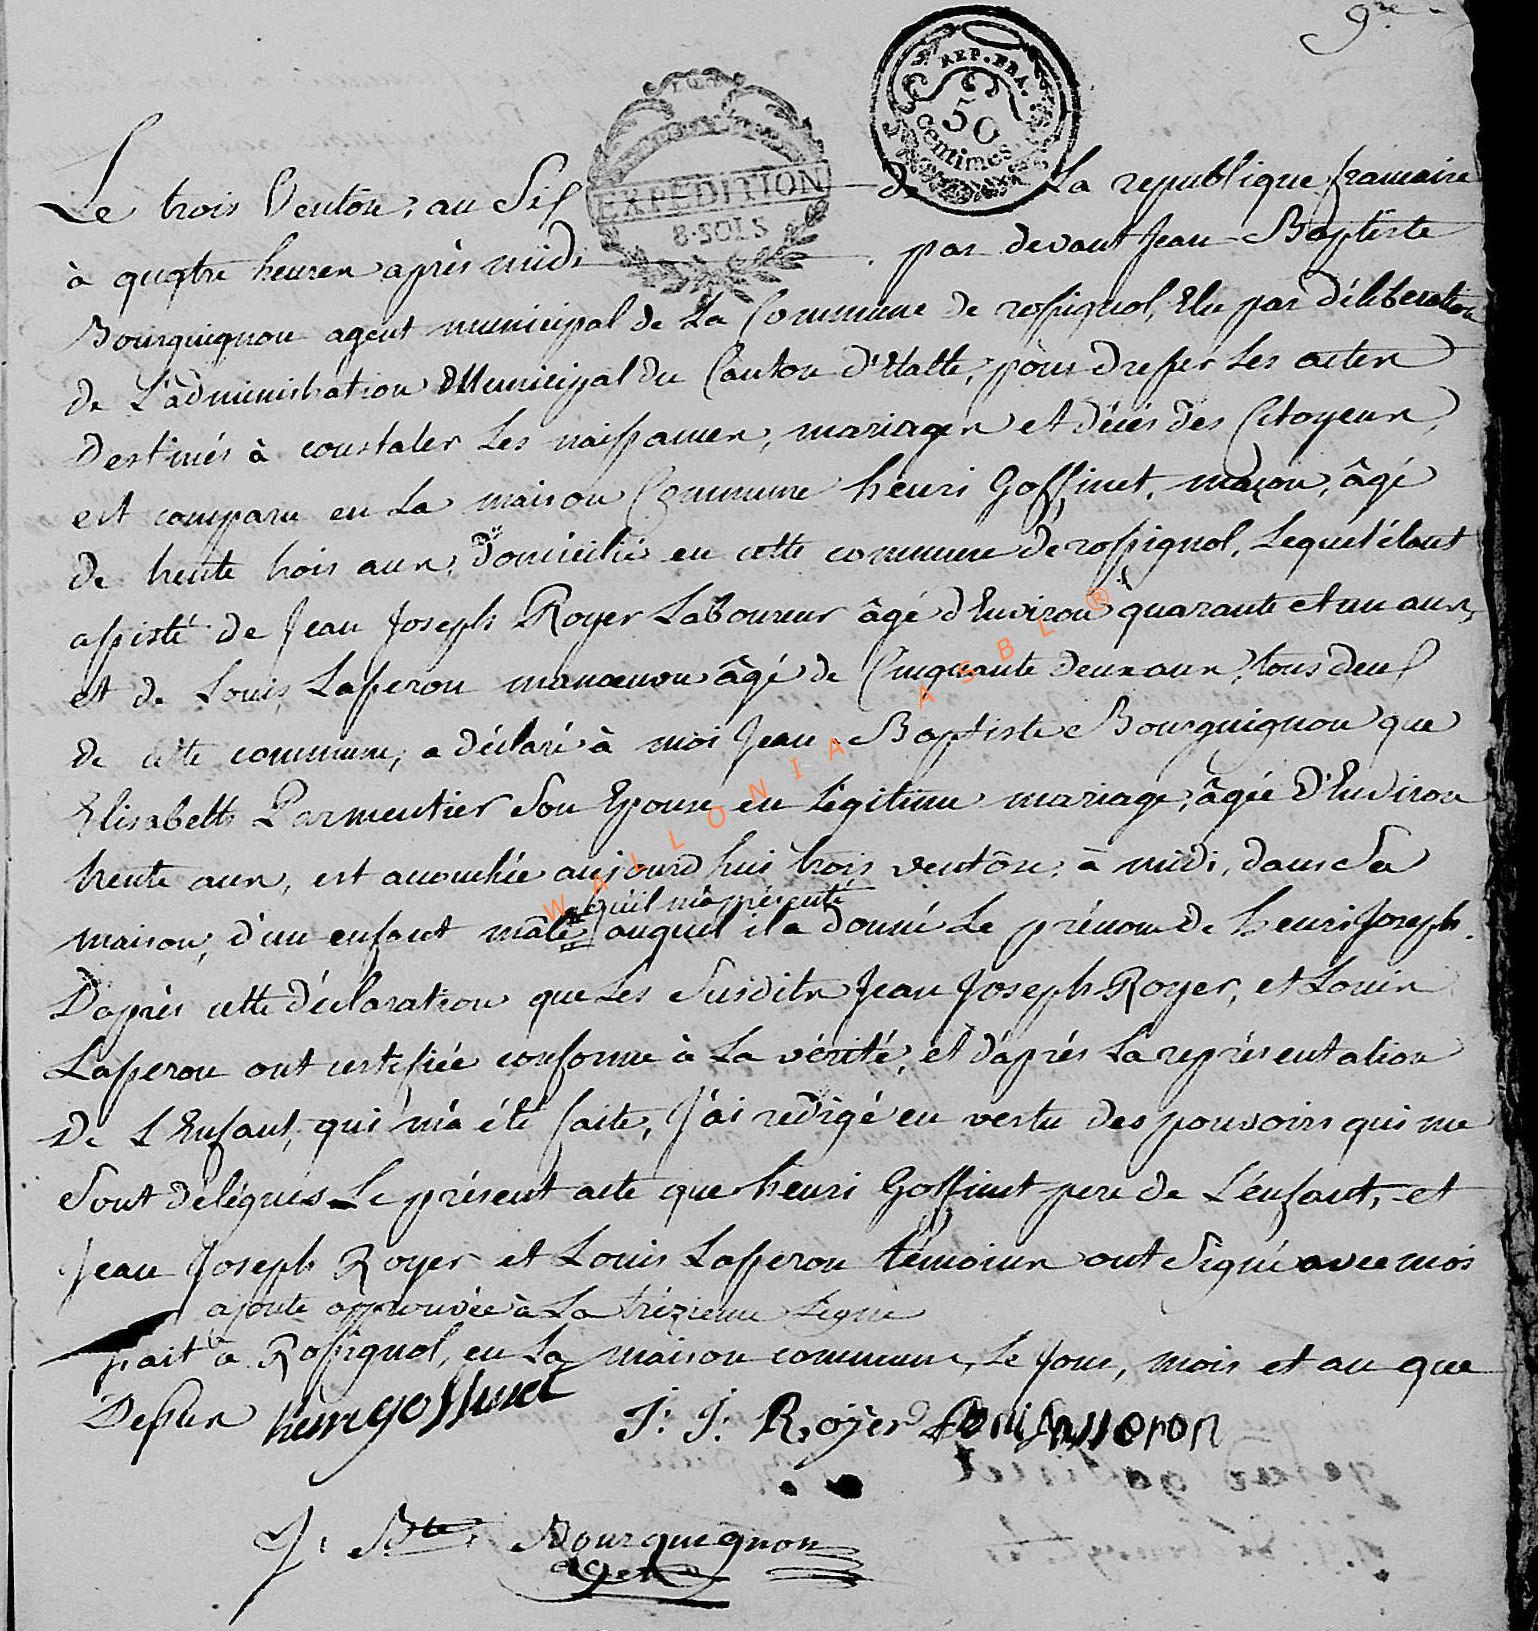 9.re
REP. FRA.
50
centimes
EXPEDITION
8·SOLS
Le trois Ventôse, au Six de La republique francaise
à quatre heures après midi par devant Jean Baptiste
Bourguignon agent municipal de La Commune de rossignol, Elu par délibération
de L'administration Municipal du Canton d'Etalle, pour dresser Les actes
destinés à constater Les naissances, mariages et décès des Citoyens,
est comparu en La maison Commune henri Goffinet, maçon, âgé
de trente trois ans, domicilié en cette commune de rossignol, Lequel étant
assisté de Jean Joseph Royer Laboureur âgé d'Environ quarante et un ans,
et de Louis Lasseron manoeuvre âgé de Cinquante deux ans, tous deux
de cette commune, a déclaré à moi Jean Baptiste Bourguignon que
Elisabeth Parmentier Son Epouse en Légitime mariage, âgée d'Environ
trente ans, est accouchée aujourd'hui trois ventôse à midi, dans Sa
qu'il m'a présenté
maison, d'un enfant mâle auquel il a donné Le prénom de henri Joseph.
D'après cette déclaration que Les Susdits Jean Joseph Royer, et Louis
Lasseron ont certifiée conforme à La vérité, et d'après La représentation
De L'Enfant, qui m'a été faite, J'ai redigé en vertu des pouvoirs qui me
Sont délégués Le présent acte que henri Goffinet pere de L'énfant, et
Jean Joseph Royer et Louis Lasseron témoins ont Signé avec moi
ajoute approuvée à La trézieme Ligne
fait à Rossignol, en La maison commune, Le jour, mois et an que
Dessus henri goffinet J: J: Royer Louis Lasseron
J: Bte: Bourguignon
agent
WALLONIA ASBL ®